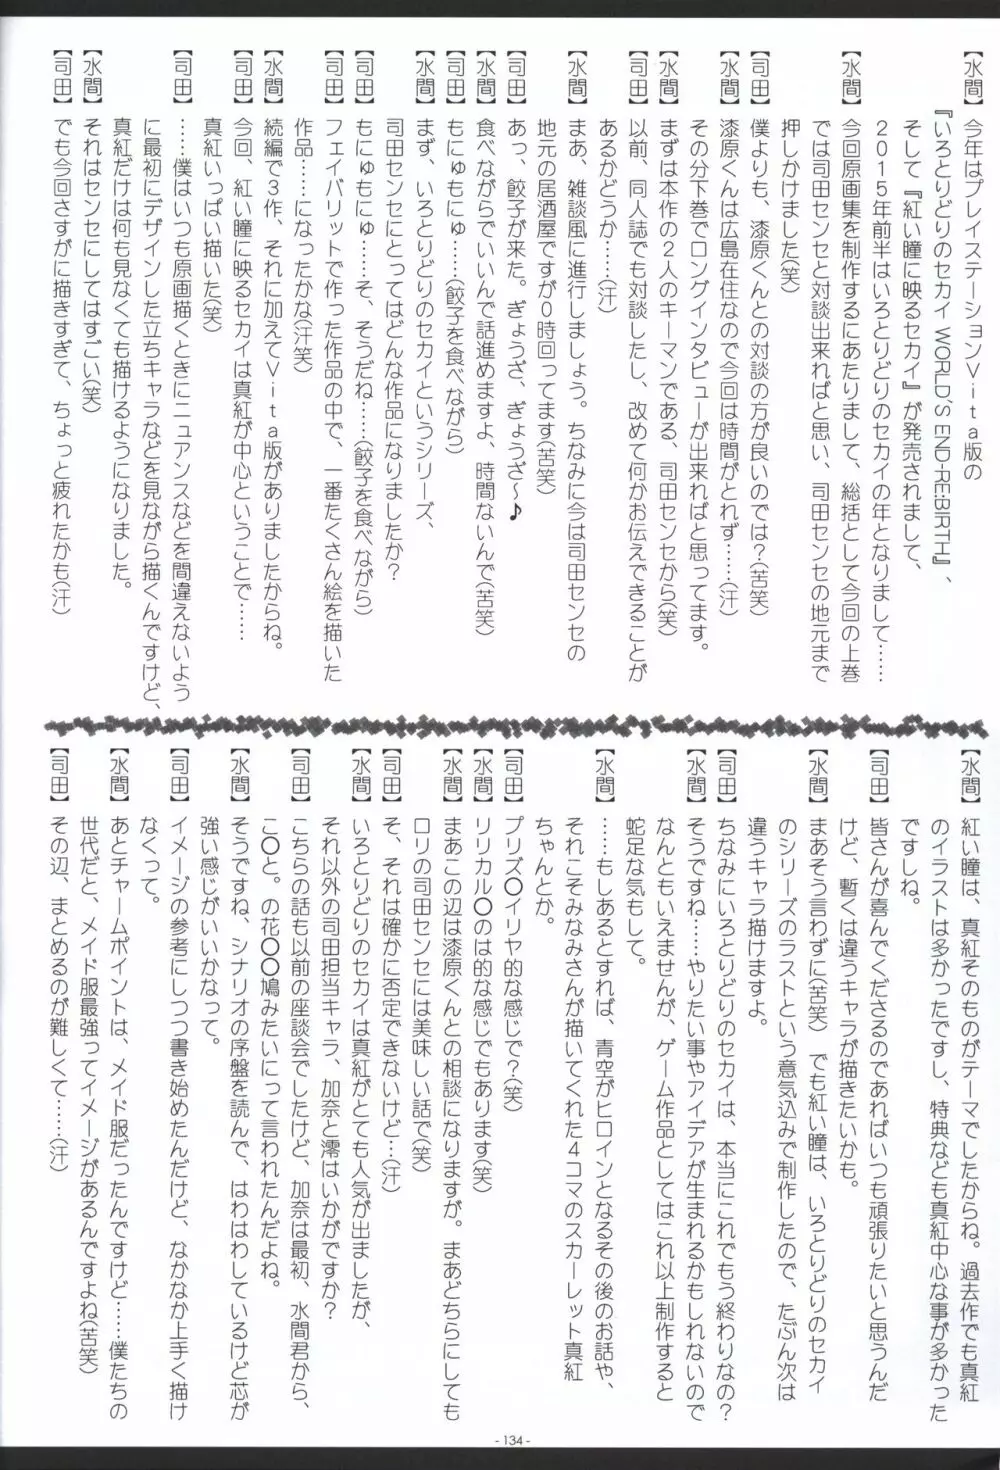 【水間】今年はプレイステーションVita版の
『いろとりどりのセカイ WORLD'S END-RE:BIRTH』、
そして『紅い瞳に映るセカイ』が発売されまして、
2015年前半はいろとりどりのセカイの年となりまして……
【水間】今回原画集を制作するにあたりまして、総括として今回の上巻
では司田センセと対談出来ればと思い、司田センセの地元まで
押しかけました(笑)
【司田】僕よりも、漆原くんとの対談の方が良いのでは?(苦笑)
【水間】漆原くんは広島在住なので今回は時間がとれず……(汗)
その分下巻でロングインタビューが出来ればと思ってます。
【水間】まずは本作の2人のキーマンである、司田センセから(笑)
【司田】以前、同人誌でも対談したし、改めて何かお伝えできることが
あるかどうか……(汗)
【水間】まあ、雑談風に進行しましょう。ちなみに今は司田センセの
地元の居酒屋ですが0時回ってます(苦笑)
【司田】あっ、餃子が来た。ぎょうざ、ぎょうざ～♪
【水間】食べながらでいいんで話進めますよ、時間ないんで(苦笑)
【司田】もにゅもにゅ……(餃子を食べながら)
【水間】まず、いろとりどりのセカイというシリーズ、
司田センセにとってはどんな作品になりましたか?
【司田】もにゅもにゅ……そ、そうだね……(餃子を食べながら)
【司田】フェイバリットで作った作品の中で、一番たくさん絵を描いた
作品……になったかな(汗笑)
【水間】続編で3作、それに加えてVita版がありましたからね。
【司田】今回、紅い瞳に映るセカイは真紅が中心ということで……
真紅いっぱい描いた(笑)
【司田】……僕はいつも原画描くときにニュアンスなどを間違えないよう
に最初にデザインした立ちキャラなどを見ながら描くんですけど、
真紅だけは何も見なくても描けるようになりました。
【水間】それはセンセにしてはすごい(笑)
【司田】でも今回さすがに描きすぎて、ちょっと疲れたかも(汗)
【水間】紅い瞳は、真紅そのものがテーマでしたからね。過去作でも真紅
のイラストは多かったですし、特典なども真紅中心な事が多かった
ですしね。
【司田】皆さんが喜んでくださるのであればいつも頑張りたいと思うんだ
けど、暫くは違うキャラが描きたいかも。
【水間】まあそう言わずに(苦笑) でも紅い瞳は、いろとりどりのセカイ
のシリーズのラストという意気込みで制作したので、たぶん次は
違うキャラ描けますよ。
【司田】ちなみにいろとりどりのセカイは、本当にこれでもう終わりなの?
【水間】そうですね……やりたい事やアイデアが生まれるかもしれないので
なんともいえませんが、ゲーム作品としてはこれ以上制作すると
蛇足な気もして。
【水間】……もしあるとすれば、青空がヒロインとなるその後のお話や、
それこそみなみさんが描いてくれた4コマのスカーレット真紅
ちゃんとか。
【司田】プリズ〇イリヤ的な感じで?(笑)
【水間】リリカル〇のは的な感じでもあります(笑)
【水間】まあこの辺は漆原くんとの相談になりますが。まあどちらにしても
ロリの司田センセには美味しい話で(笑)
【司田】そ、それは確かに否定できないけど…(汗)
【水間】いろとりどりのセカイは真紅がとても人気が出ましたが、
それ以外の司田担当キャラ、加奈と澪はいかがですか?
【司田】こちらの話も以前の座談会でしたけど、加奈は最初、水間君から、
こ〇と。の花〇〇鳩みたいにって言われたんだよね。
【水間】そうですね、シナリオの序盤を読んで、はわはわしているけど芯が
強い感じがいいかなって。
【司田】イメージの参考にしつつ書き始めたんだけど、なかなか上手く描け
なくって。
【水間】あとチャームポイントは、メイド服だったんですけど……僕たちの
世代だと、メイド服最強ってイメージがあるんですよね(苦笑)
【司田】その辺、まとめるのが難しくて……(汗)
- 134 -